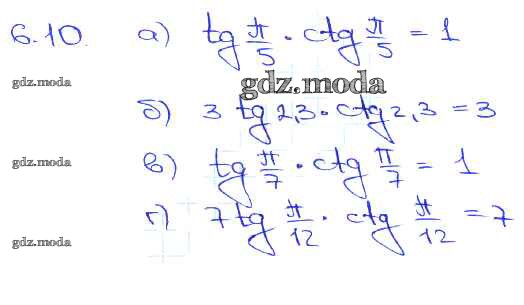 6.10. а) tg π/5 · ctg π/5 = 1
gdz.moda
gdz.moda
б) 3 tg 2,3 · ctg 2,3 = 3
gdz.moda
в) tg π/7 · ctg π/7 = 1
г) 7 tg π/12 · ctg π/12 = 7
gdz.moda